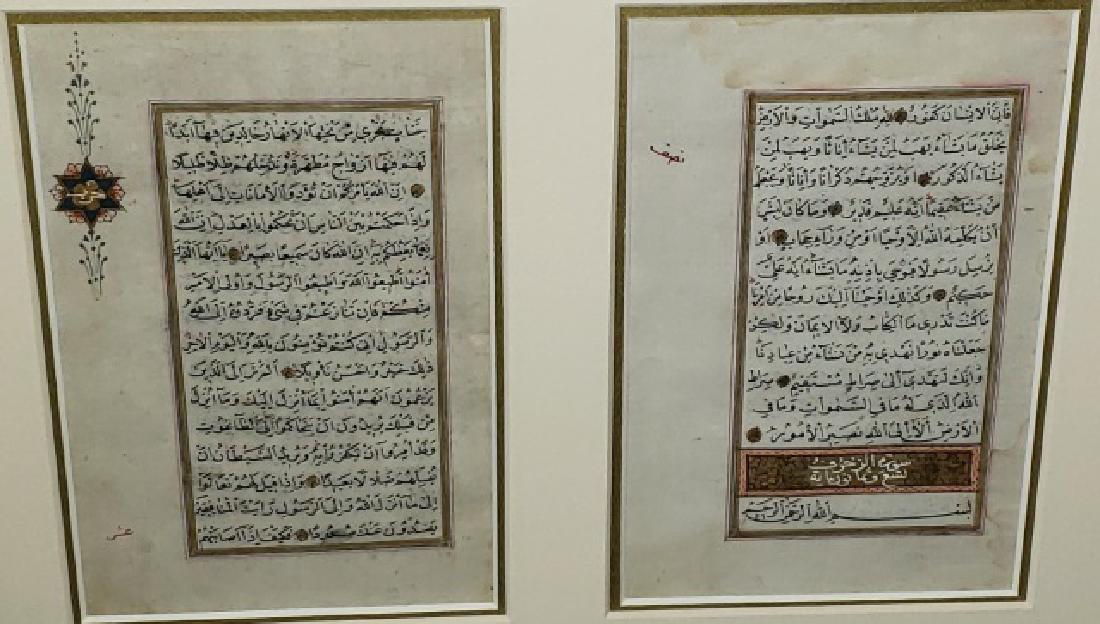 نصف
فَإِنَّ الْاِنْسَانَ كَفُورٌ لِلّٰهِ مُلْكُ السَّمٰوَاتِ وَالْاَرْضِ
يَخْلُقُ مَا يَشَاءُ يَهَبُ لِمَنْ يَشَاءُ اِنَاثًا وَيَهَبُ لِمَنْ
يَشَاءُ الذُّكُورَ اَوْ يُزَوِّجُهُمْ ذُكْرَانًا وَاِنَاثًا وَيَجْعَلُ
مَنْ يَشَاءُ عَقِيمًا اِنَّهُ عَلِيمٌ قَدِيرٌ وَمَا كَانَ لِبَشَرٍ
اَنْ يُكَلِّمَهُ اللّٰهُ اِلَّا وَحْيًا اَوْ مِنْ وَرَاءِ حِجَابٍ اَوْ
يُرْسِلَ رَسُولًا فَيُوحِيَ بِاِذْنِهِ مَا يَشَاءُ اِنَّهُ عَلِيٌّ
حَكِيمٌ وَكَذٰلِكَ اَوْحَيْنَا اِلَيْكَ رُوحًا مِنْ اَمْرِنَا
مَا كُنْتَ تَدْرِي مَا الْكِتَابُ وَلَا الْاِيمَانُ وَلٰكِنْ
جَعَلْنَاهُ نُورًا نَهْدِي بِهِ مَنْ نَشَاءُ مِنْ عِبَادِنَا
وَاِنَّكَ لَتَهْدِي اِلٰى صِرَاطٍ مُسْتَقِيمٍ صِرَاطِ
اللّٰهِ الَّذِي لَهُ مَا فِي السَّمٰوَاتِ وَمَا فِي
الْاَرْضِ اَلَا اِلَى اللّٰهِ تَصِيرُ الْاُمُورُ
سورة الزخرف
تسع وثمانون اية
بِسْمِ اللّٰهِ الرَّحْمٰنِ الرَّحِيمِ
جَنَّاتٍ تَجْرِي مِنْ تَحْتِهَا الْاَنْهَارُ خَالِدِينَ فِيهَا اَبَدًا
لَهُمْ فِيهَا اَزْوَاجٌ مُطَهَّرَةٌ وَنُدْخِلُهُمْ ظِلًّا ظَلِيلًا
اِنَّ اللّٰهَ يَأْمُرُكُمْ اَنْ تُؤَدُّوا الْاَمَانَاتِ اِلٰى اَهْلِهَا
وَاِذَا حَكَمْتُمْ بَيْنَ النَّاسِ اَنْ تَحْكُمُوا بِالْعَدْلِ اِنَّ اللّٰهَ
نِعِمَّا يَعِظُكُمْ بِهِ اِنَّ اللّٰهَ كَانَ سَمِيعًا بَصِيرًا يَا اَيُّهَا الَّذِينَ
اٰمَنُوا اَطِيعُوا اللّٰهَ وَاَطِيعُوا الرَّسُولَ وَاُولِي الْاَمْرِ
مِنْكُمْ فَاِنْ تَنَازَعْتُمْ فِي شَيْءٍ فَرُدُّوهُ اِلَى اللّٰهِ
وَالرَّسُولِ اِنْ كُنْتُمْ تُؤْمِنُونَ بِاللّٰهِ وَالْيَوْمِ الْاٰخِرِ
ذٰلِكَ خَيْرٌ وَاَحْسَنُ تَأْوِيلًا اَلَمْ تَرَ اِلَى الَّذِينَ
يَزْعُمُونَ اَنَّهُمْ اٰمَنُوا بِمَا اُنْزِلَ اِلَيْكَ وَمَا اُنْزِلَ
مِنْ قَبْلِكَ يُرِيدُونَ اَنْ يَتَحَاكَمُوا اِلَى الطَّاغُوتِ
وَقَدْ اُمِرُوا اَنْ يَكْفُرُوا بِهِ وَيُرِيدُ الشَّيْطَانُ اَنْ
يُضِلَّهُمْ ضَلَالًا بَعِيدًا وَاِذَا قِيلَ لَهُمْ تَعَالَوْا
اِلٰى مَا اَنْزَلَ اللّٰهُ وَاِلَى الرَّسُولِ رَاَيْتَ الْمُنَافِقِينَ
يَصُدُّونَ عَنْكَ صُدُودًا فَكَيْفَ اِذَا اَصَابَتْهُمْ
عشر